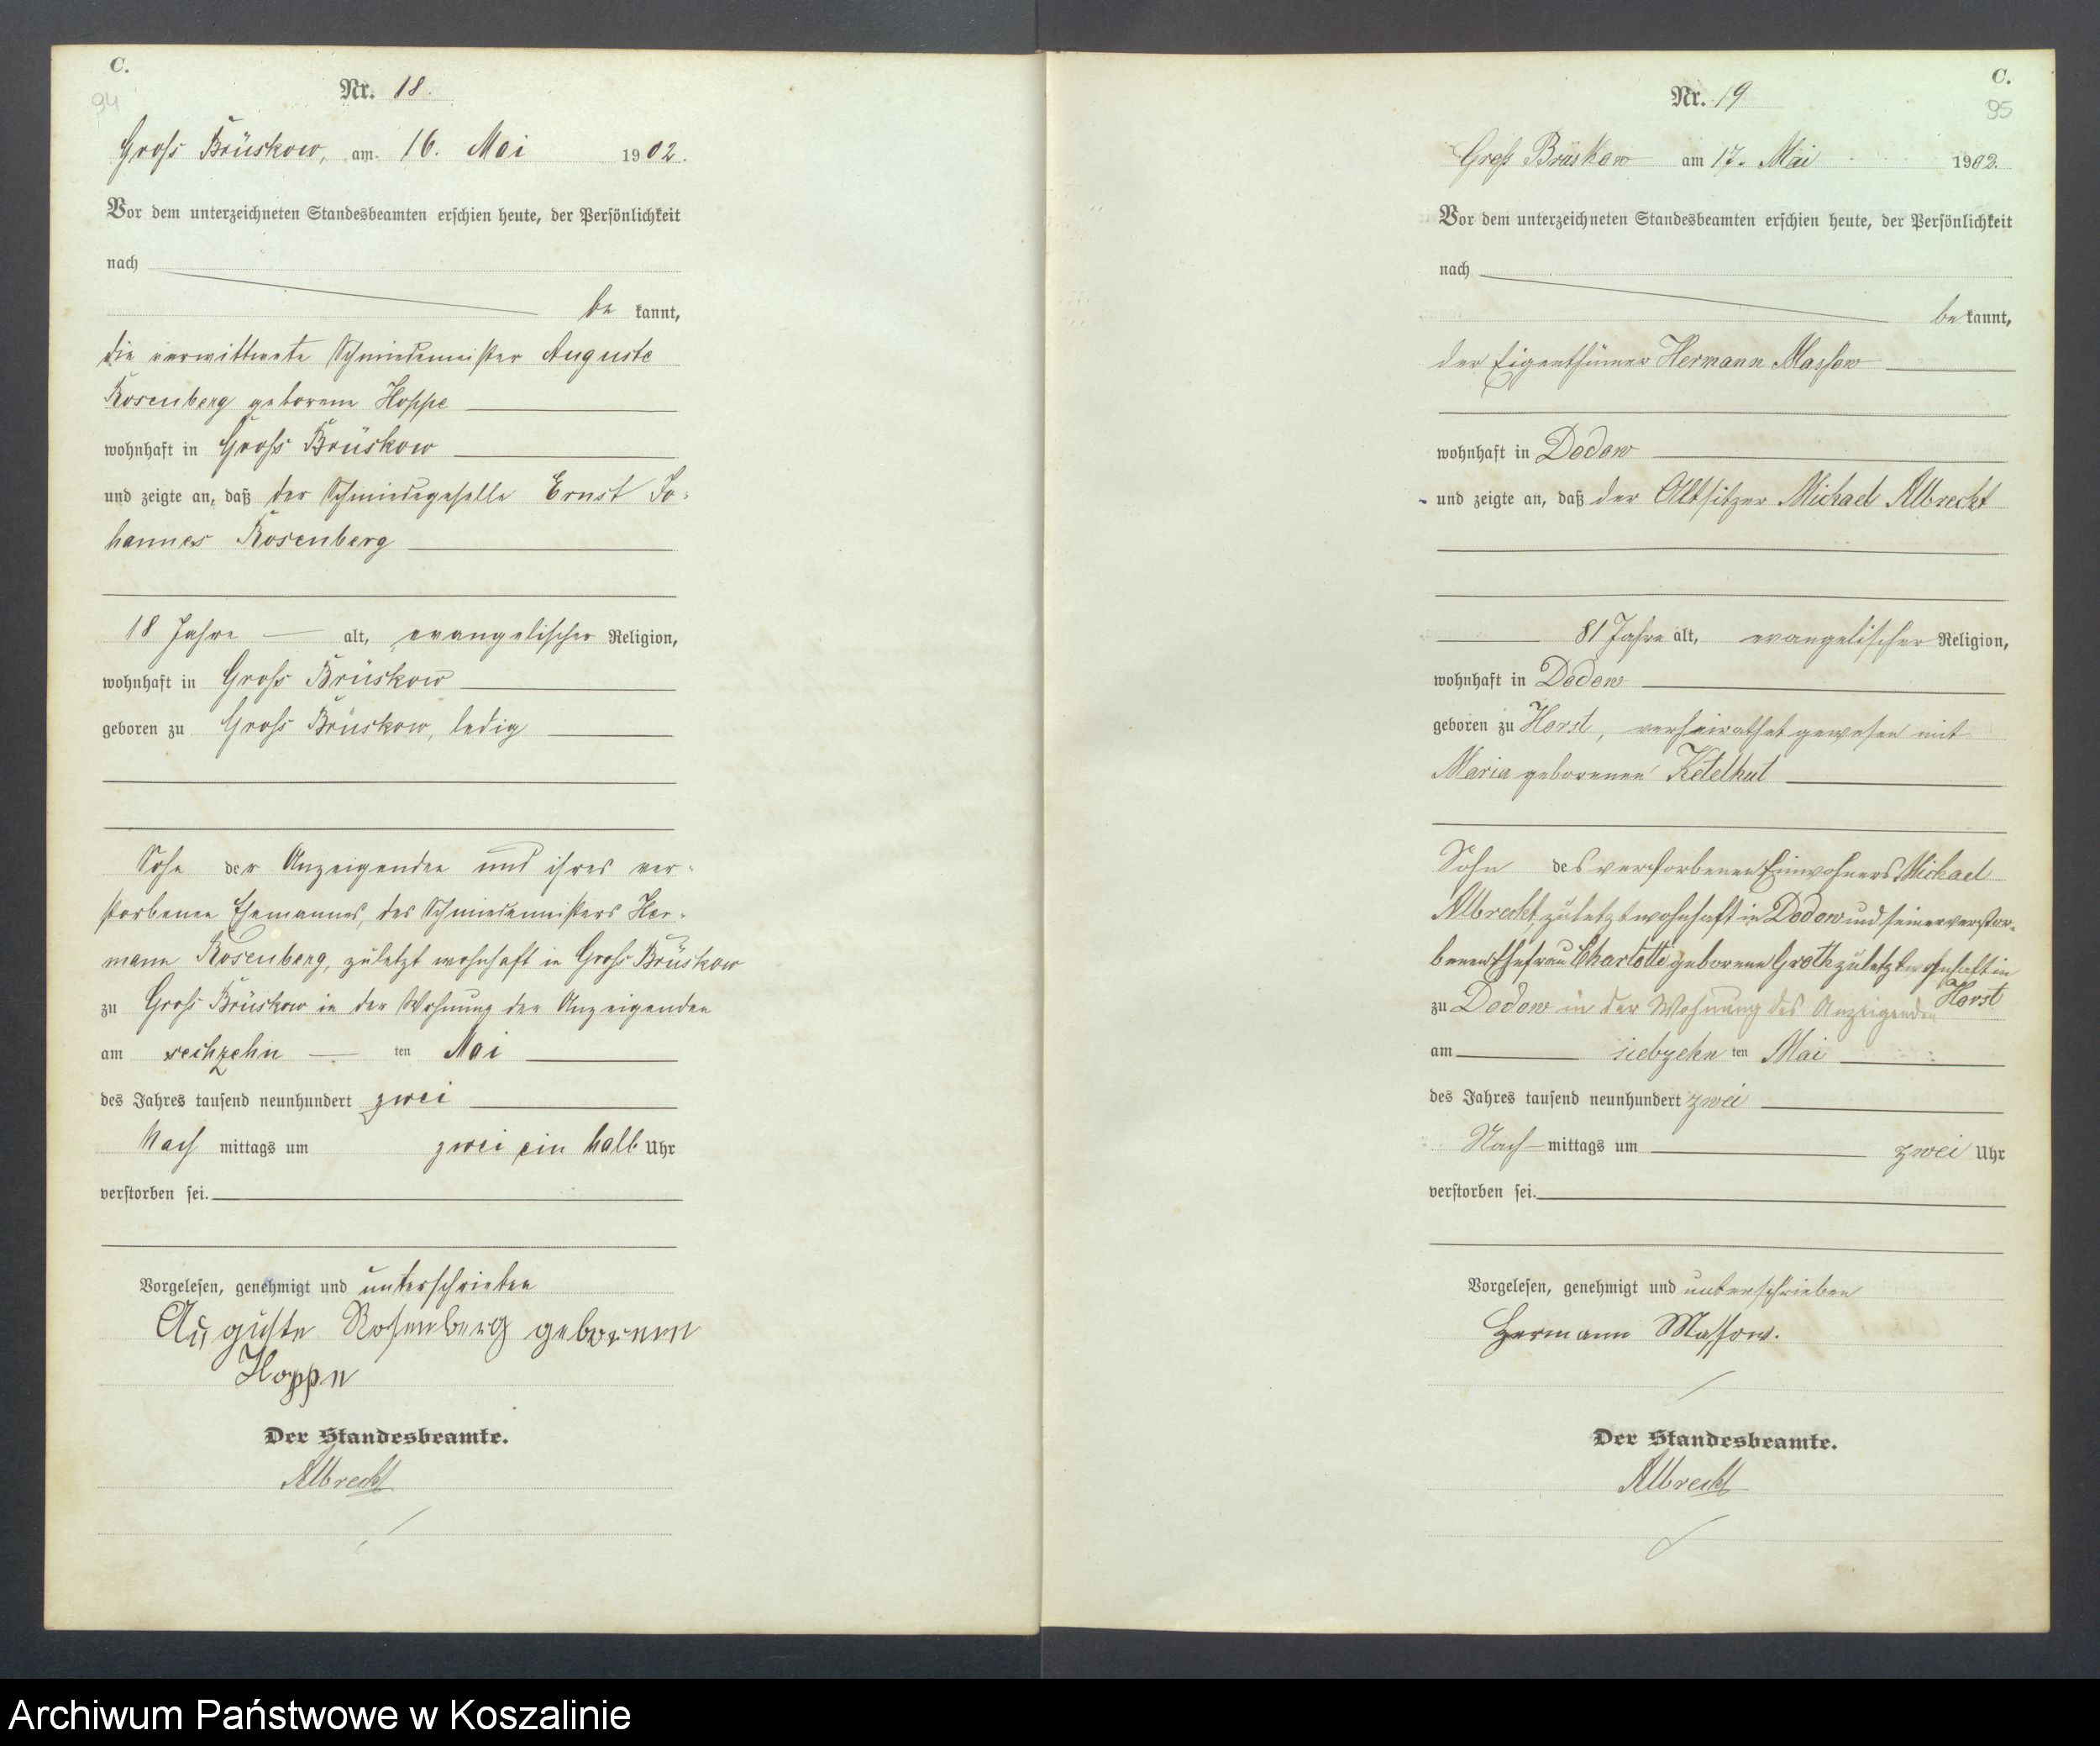 C.
94
Nr. 18.
Gross Brüskow, am 16. Mai 1902.
Vor dem unterzeichneten Standesbeamten erschien heute, der Persönlichkeit
nach
be kannt,
die verwittwete Schmiedemeister Auguste
Rosenberg geborene Hoppe
wohnhaft in Gross Brüskow
und zeigte an, daß der Schmiedegeselle Ernst Jo-
hannes Rosenberg
18 Jahre alt, evangelischer Religion,
wohnhaft in Gross Brüskow
geboren zu Gross Brüskow, ledig
Sohn der Anzeigenden und ihres ver-
storbenen Ehemannes, des Schmiedemeisters Her-
mann Rosenberg, zuletzt wohnhaft in Gross Brüskow
zu Gross Brüskow in der Wohnung der Anzeigenden
am sechzehn ten Mai
des Jahres tausend neunhundert zwei
Nach mittags um zwei ein halb Uhr
verstorben sei.
Vorgelesen, genehmigt und unterschrieben
Auguste Rosenberg geborenen
Hoppe
Der Standesbeamte.
Albrecht
C.
95
Nr. 19
Groß Brüskow am 17. Mai 1902.
Vor dem unterzeichneten Standesbeamten erschien heute, der Persönlichkeit
nach
be kannt,
der Eigenthümer Hermann Massow
wohnhaft in Dodow
und zeigte an, daß der Altsitzer Michael Albrecht
81 Jahre alt, evangelischer Religion,
wohnhaft in Dodow
geboren zu Horst, verheirathet gewesen mit
Maria geborenen Ketelhut
Sohn des verstorbenen Einwohners Michael
Albrecht, zuletzt wohnhaft in Dodow und seiner verstor-
benen Ehefrau Charlotte geborene Groth zuletzt wohnhaft in
Horst
zu Dodow in der Wohnung des Anzeigenden
am siebzehn ten Mai
des Jahres tausend neunhundert zwei
Nach mittags um zwei Uhr
verstorben sei.
Vorgelesen, genehmigt und unterschrieben
Hermann Massow.
Der Standesbeamte.
Albrecht
Archiwum Państwowe w Koszalinie